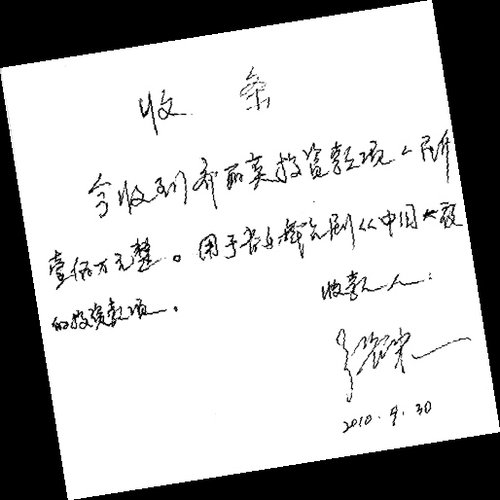 收 条
今收到乔丽英投资款项人民币
壹佰万元整。用于长篇电视剧《中国大救
的投资款项。
收款人：
2010.9.30